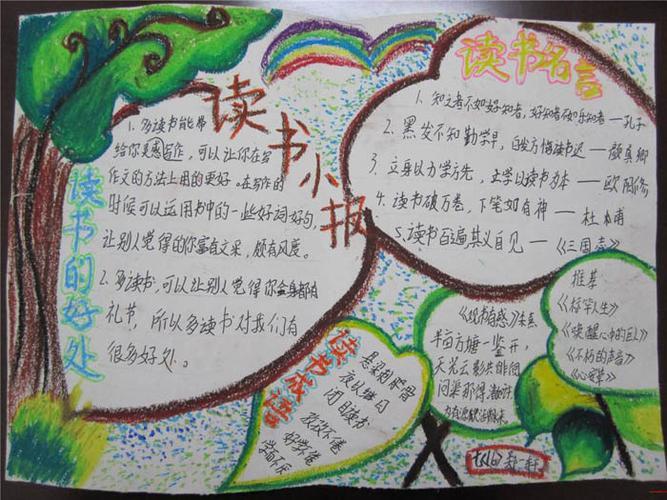 读书小报
读书的好处
1. 多读书能带
给你灵感写作,可以让你在写
作文的方法上用的更好。在写作的
时候可以运用书中的一些好词好句
让别人觉得的你富有文采,颇有风度。
2. 多读书,可以让别人觉得你全身都有
礼节,所以多读书对我们有
很多好处。
读书名言
1. 知之者不如好知者,好知者不如乐知者——孔子
2. 黑发不知勤学早,白发方悔读书迟——颜真卿
3. 立身以力学为先,立学以读书为本——欧阳修
4. 读书破万卷,下笔如有神——杜甫
5. 读书百遍其义自见——《三国志》
读书成语
悬梁刺股
夜以继日
闭目读书
孜孜不倦
好学不倦
学而不厌
《观书有感》朱熹
半亩方塘一鉴开,
天光云影共徘徊
问渠那得清如许
为有源头活水来
推荐:
《唤醒心中的巨人》
《不朽的声音》